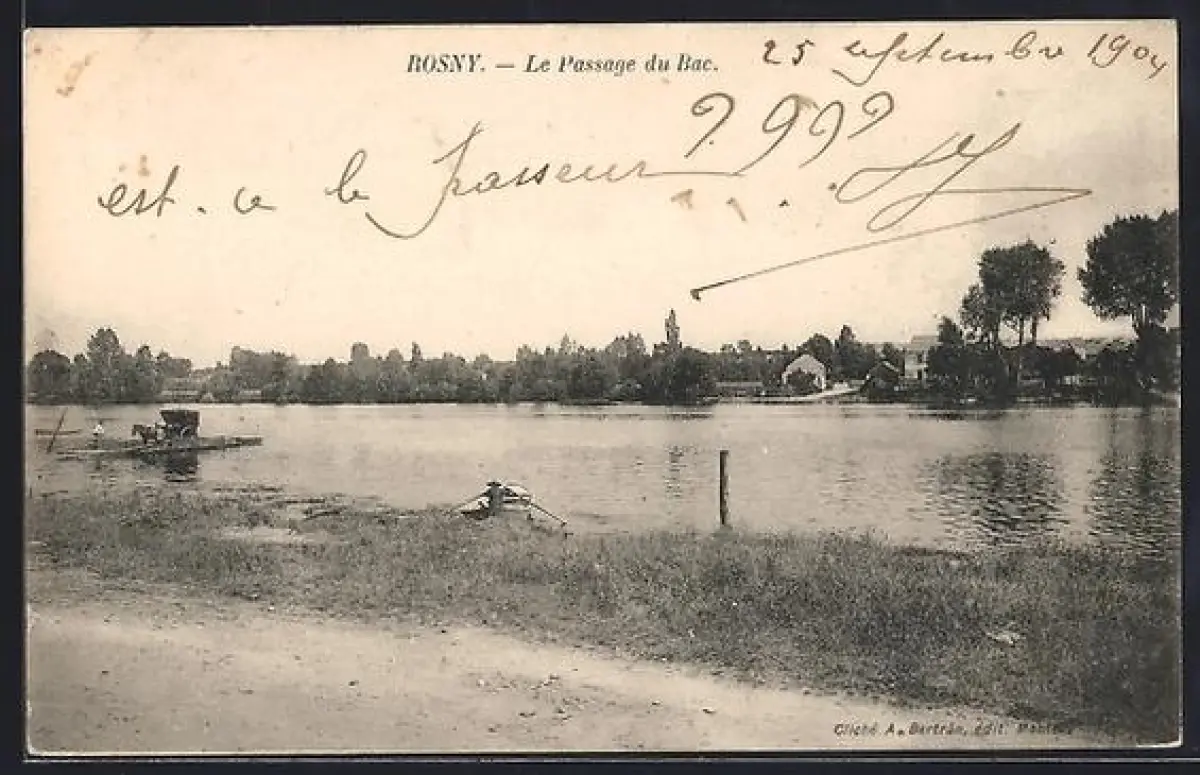 ROSNY. — Le Passage du Bac.
25 septembre 1904
est-ce le Passeur ????
Cliché A. Bertran, édit. Mantes